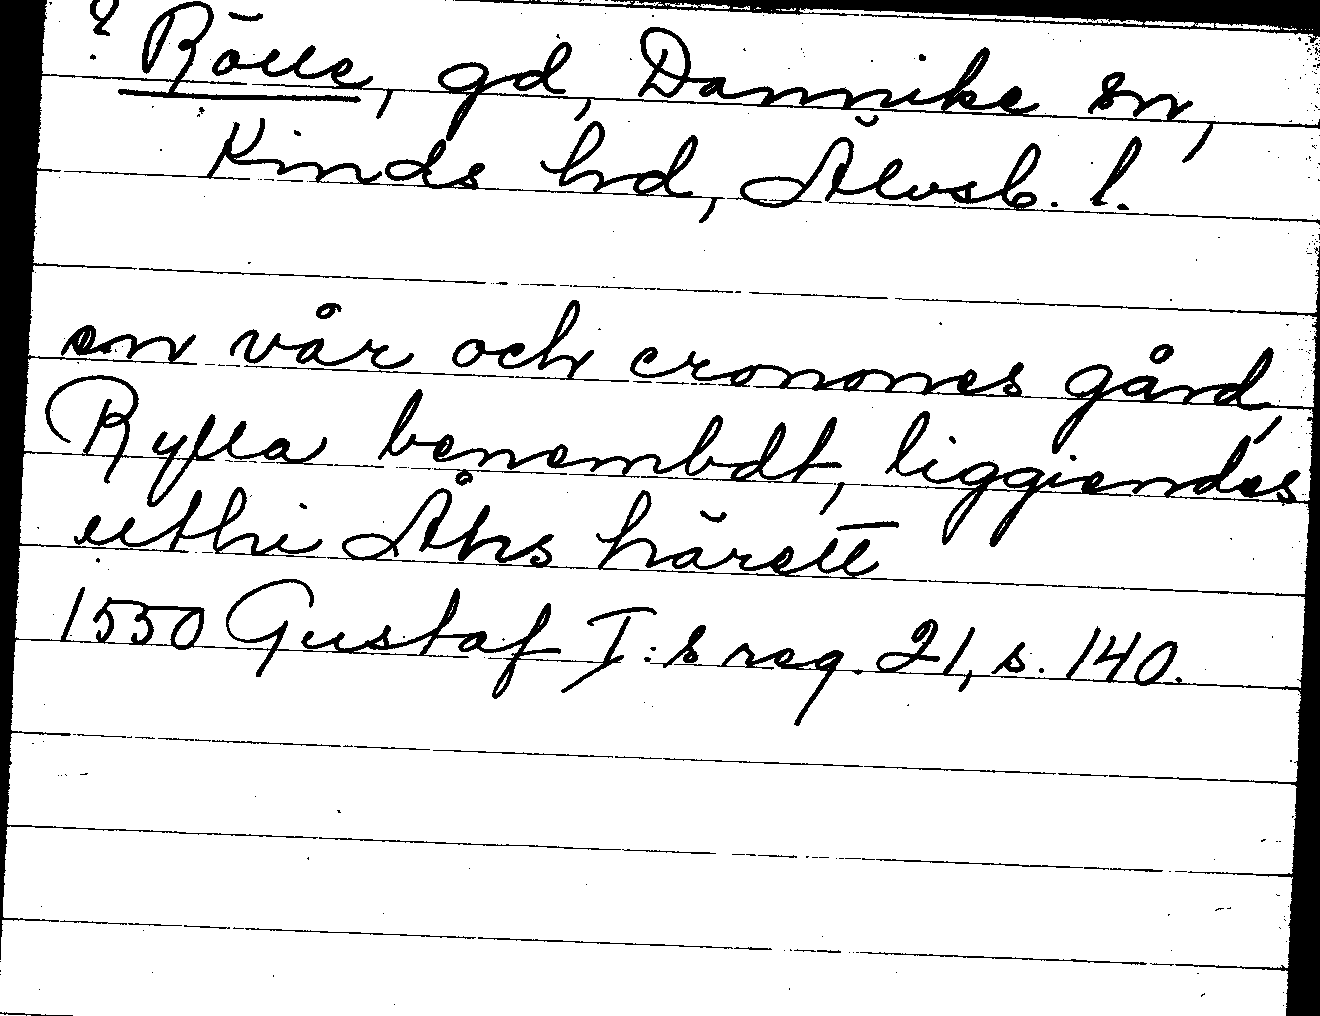 ? Rölle, gd, Dannike sn,
Kinds hd, Älvsb. l.
en vår och cronones gård,
Rylla benembdt, liggiendes
uthi Åhs härett
1550 Gustaf I:s reg. 21, s. 140.